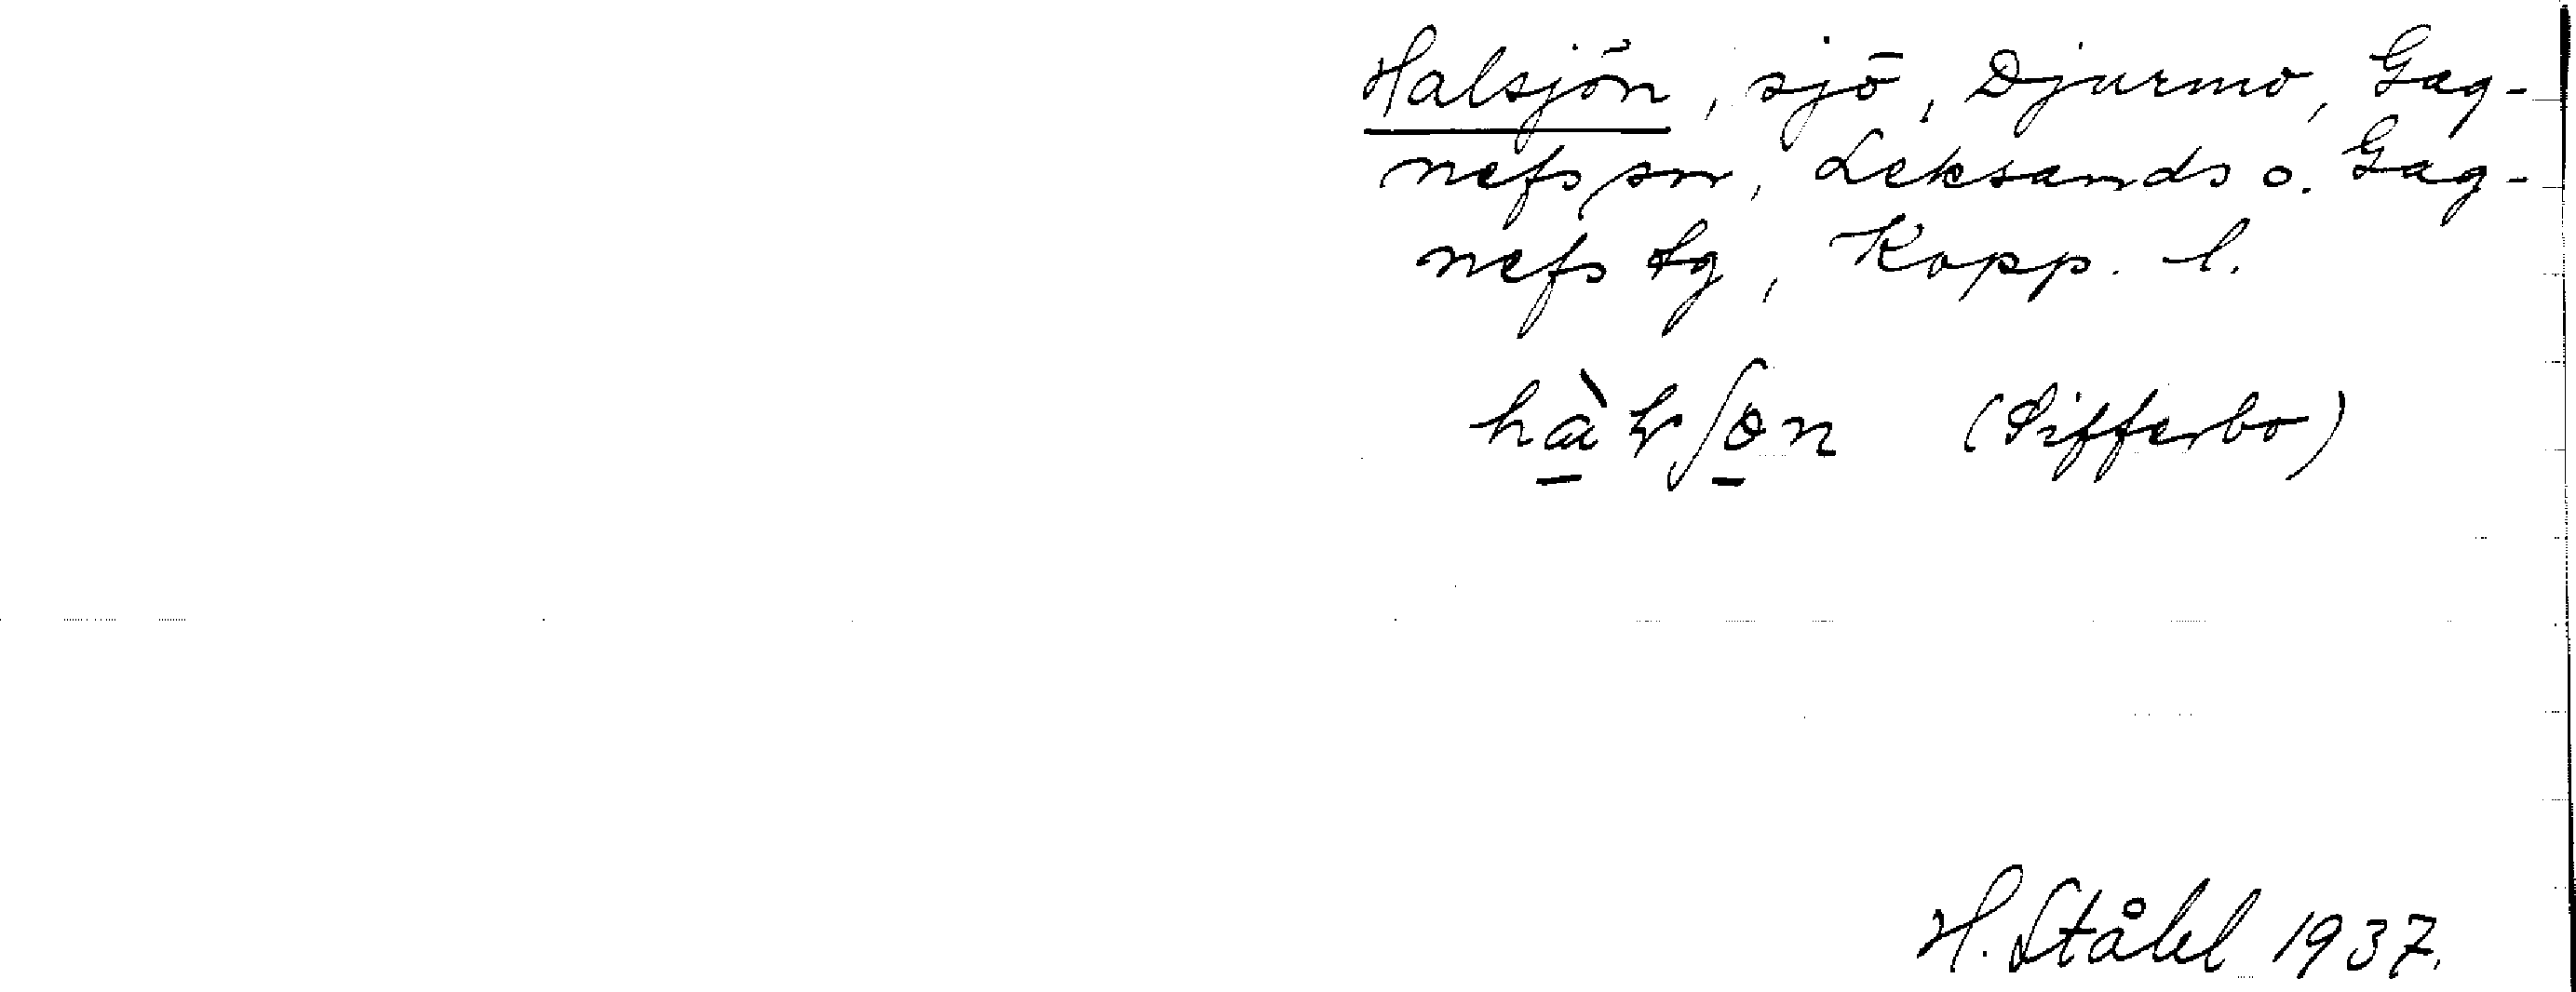 Halsjön, sjö, Djurmo, Gag-
nefs sn, Leksands o. Gag-
nefs tg, Kopp. l.
(Sifferbo)
H. Ståhl 1937.